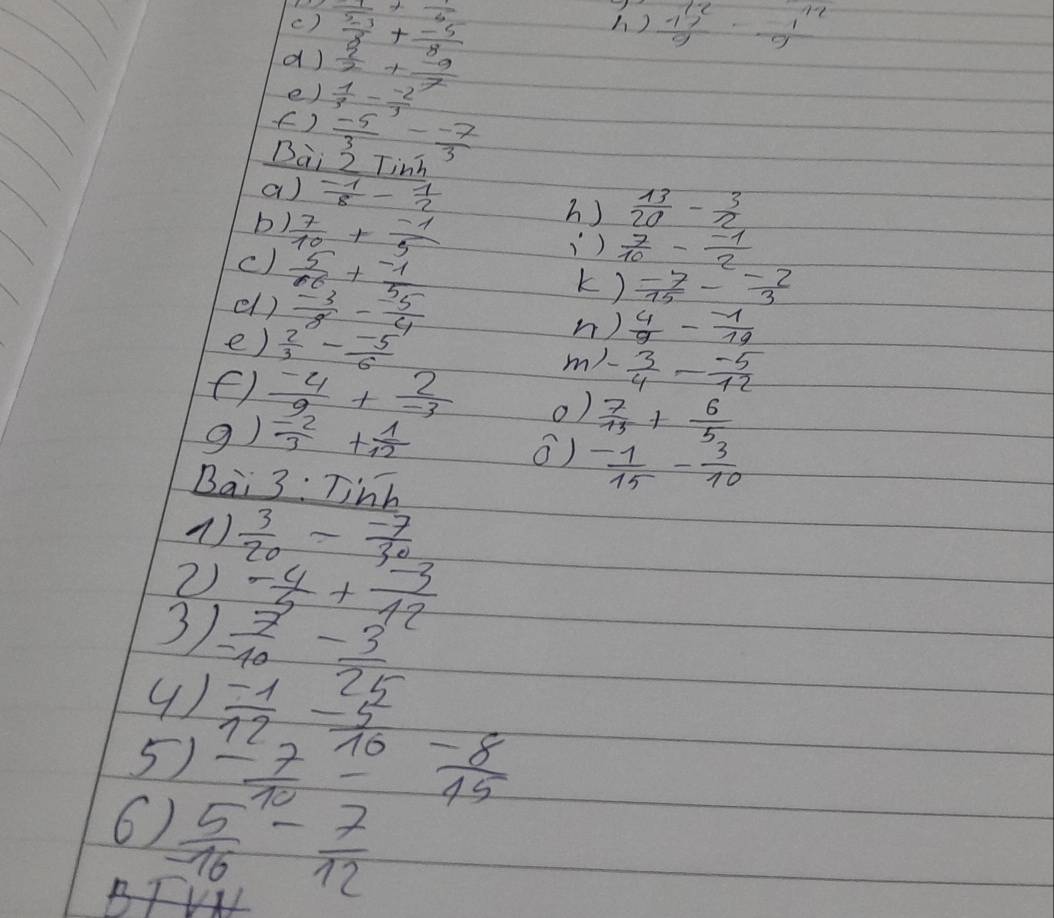 c) -3/8 + -5/8
d) 2/7 + -9/7
e) 1/3 - -2/3
f) -5/3 - -7/3
Bài 2 Tính
a) -1/8 - 1/2
b) 7/10 + -1/5
c) 5/66 + -1/5
d) -3/8 - 5/4
e) 2/3 - -5/6
f) -4/9 + 2/-3
g) -2/3 + 1/12
h) 13/20 - 3/12
i) 7/10 - -1/2
k) -7/15 - -2/3
n) 4/9 - -1/19
m) -3/4 - -5/12
o) 7/15 + 6/5
ô) -1/15 - 3/10
Bài 3: Tính
1) 3/20 - -7/30
2) -4/5 + -3/12
3) 7/-10 - 3/25
4) -1/12 - 5/16
5) -7/10 - -8/15
6) 5/-16 - 7/12
BTVN